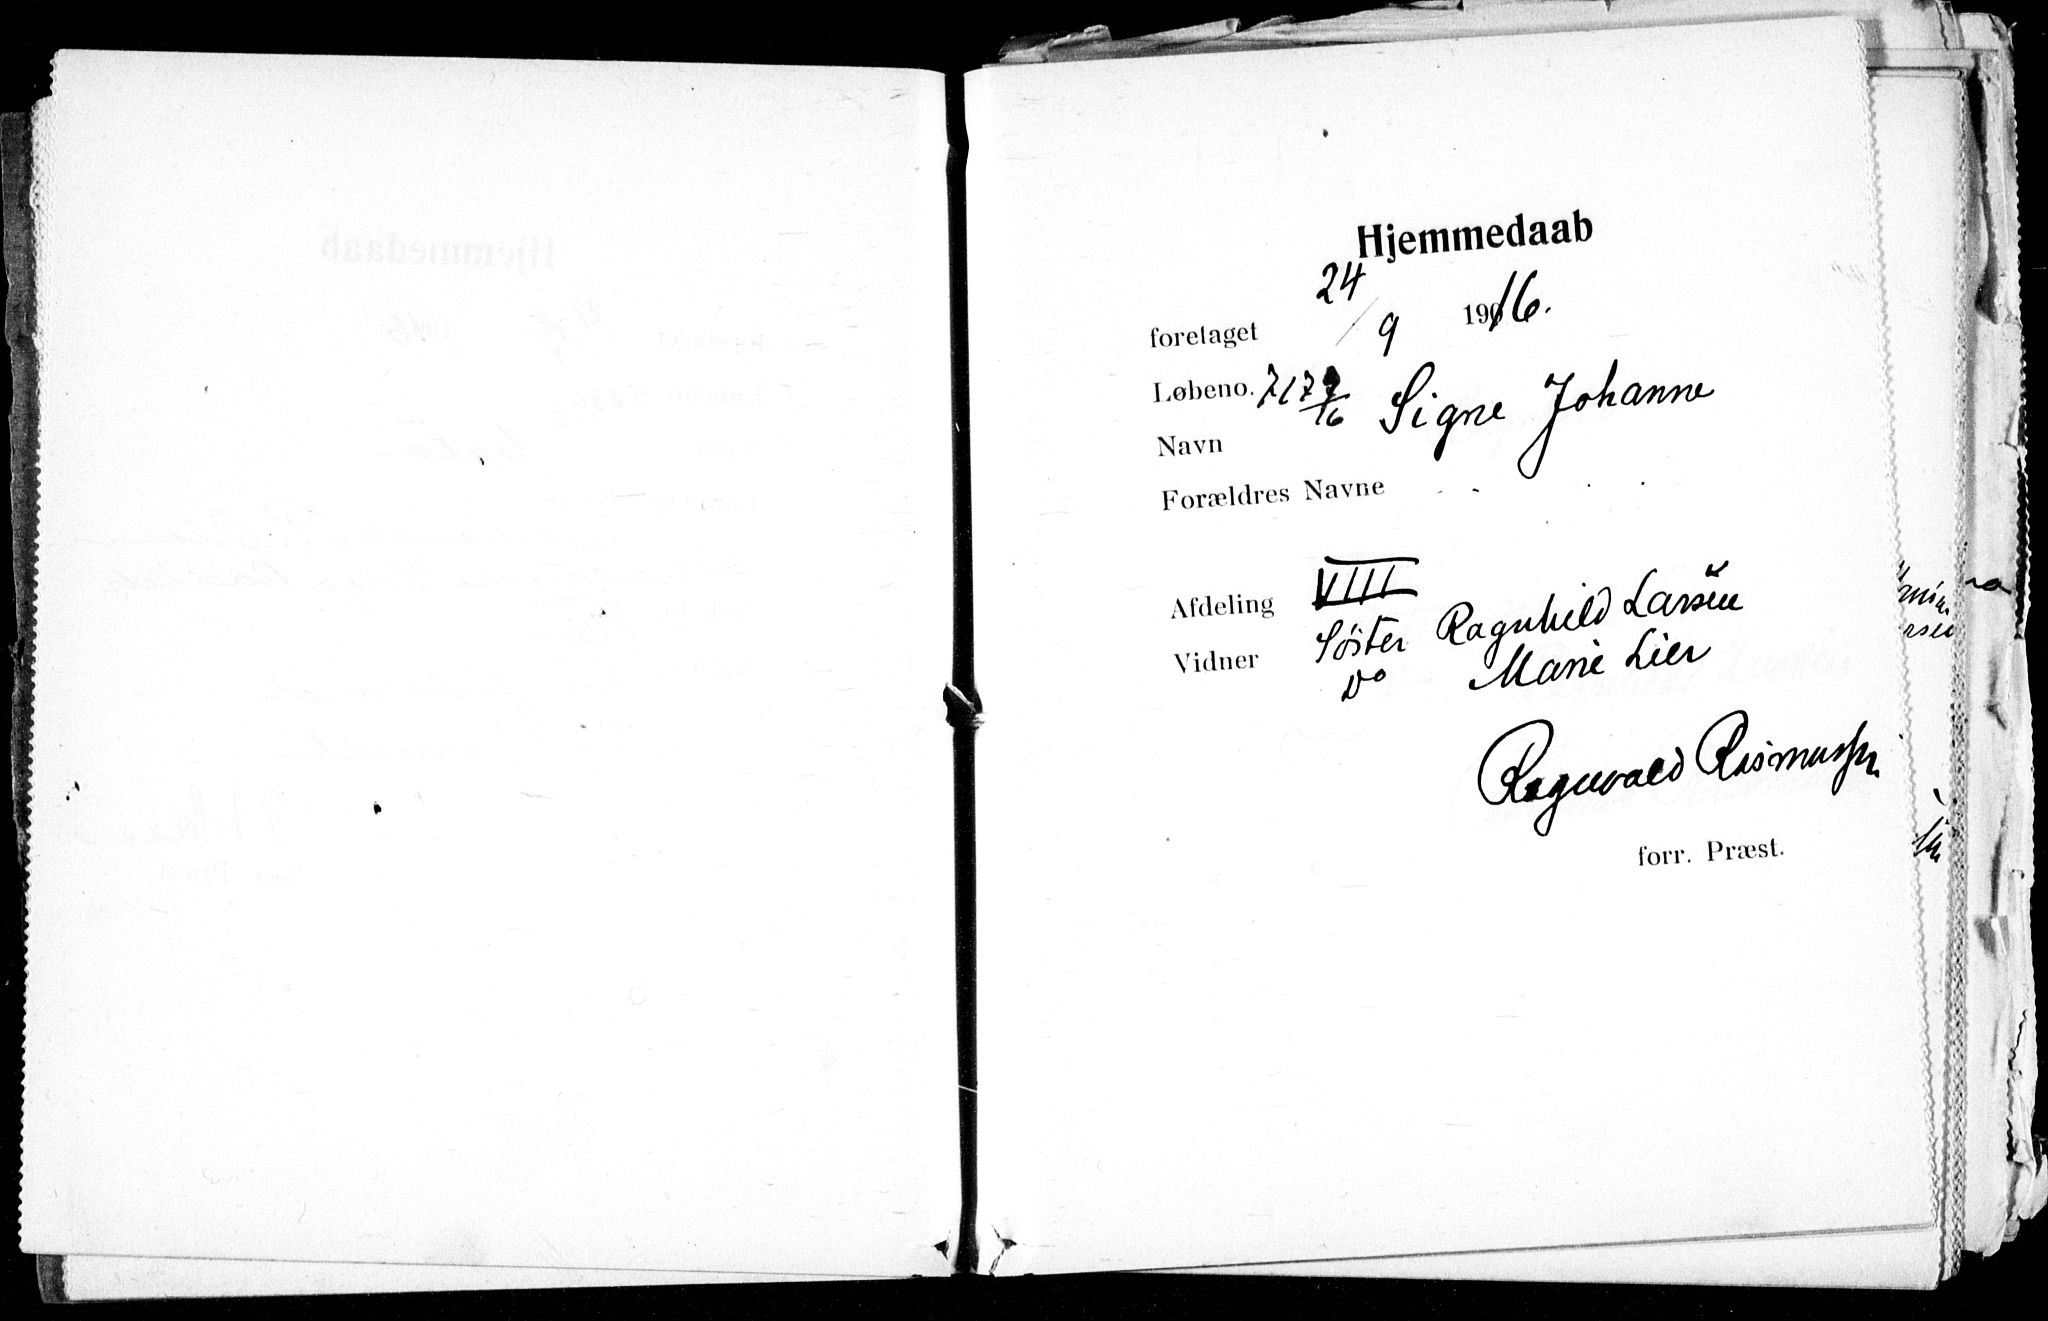 Hjemmedaab
foretaget 24/9 1916.
Løbeno. Signe Johanne
Navn
Forældres Navne
Afdeling VIII
Vidner Søster Ragnhild Larsen
Do Marie Lier
Ragnvald Rasmussen
forr. Præst.